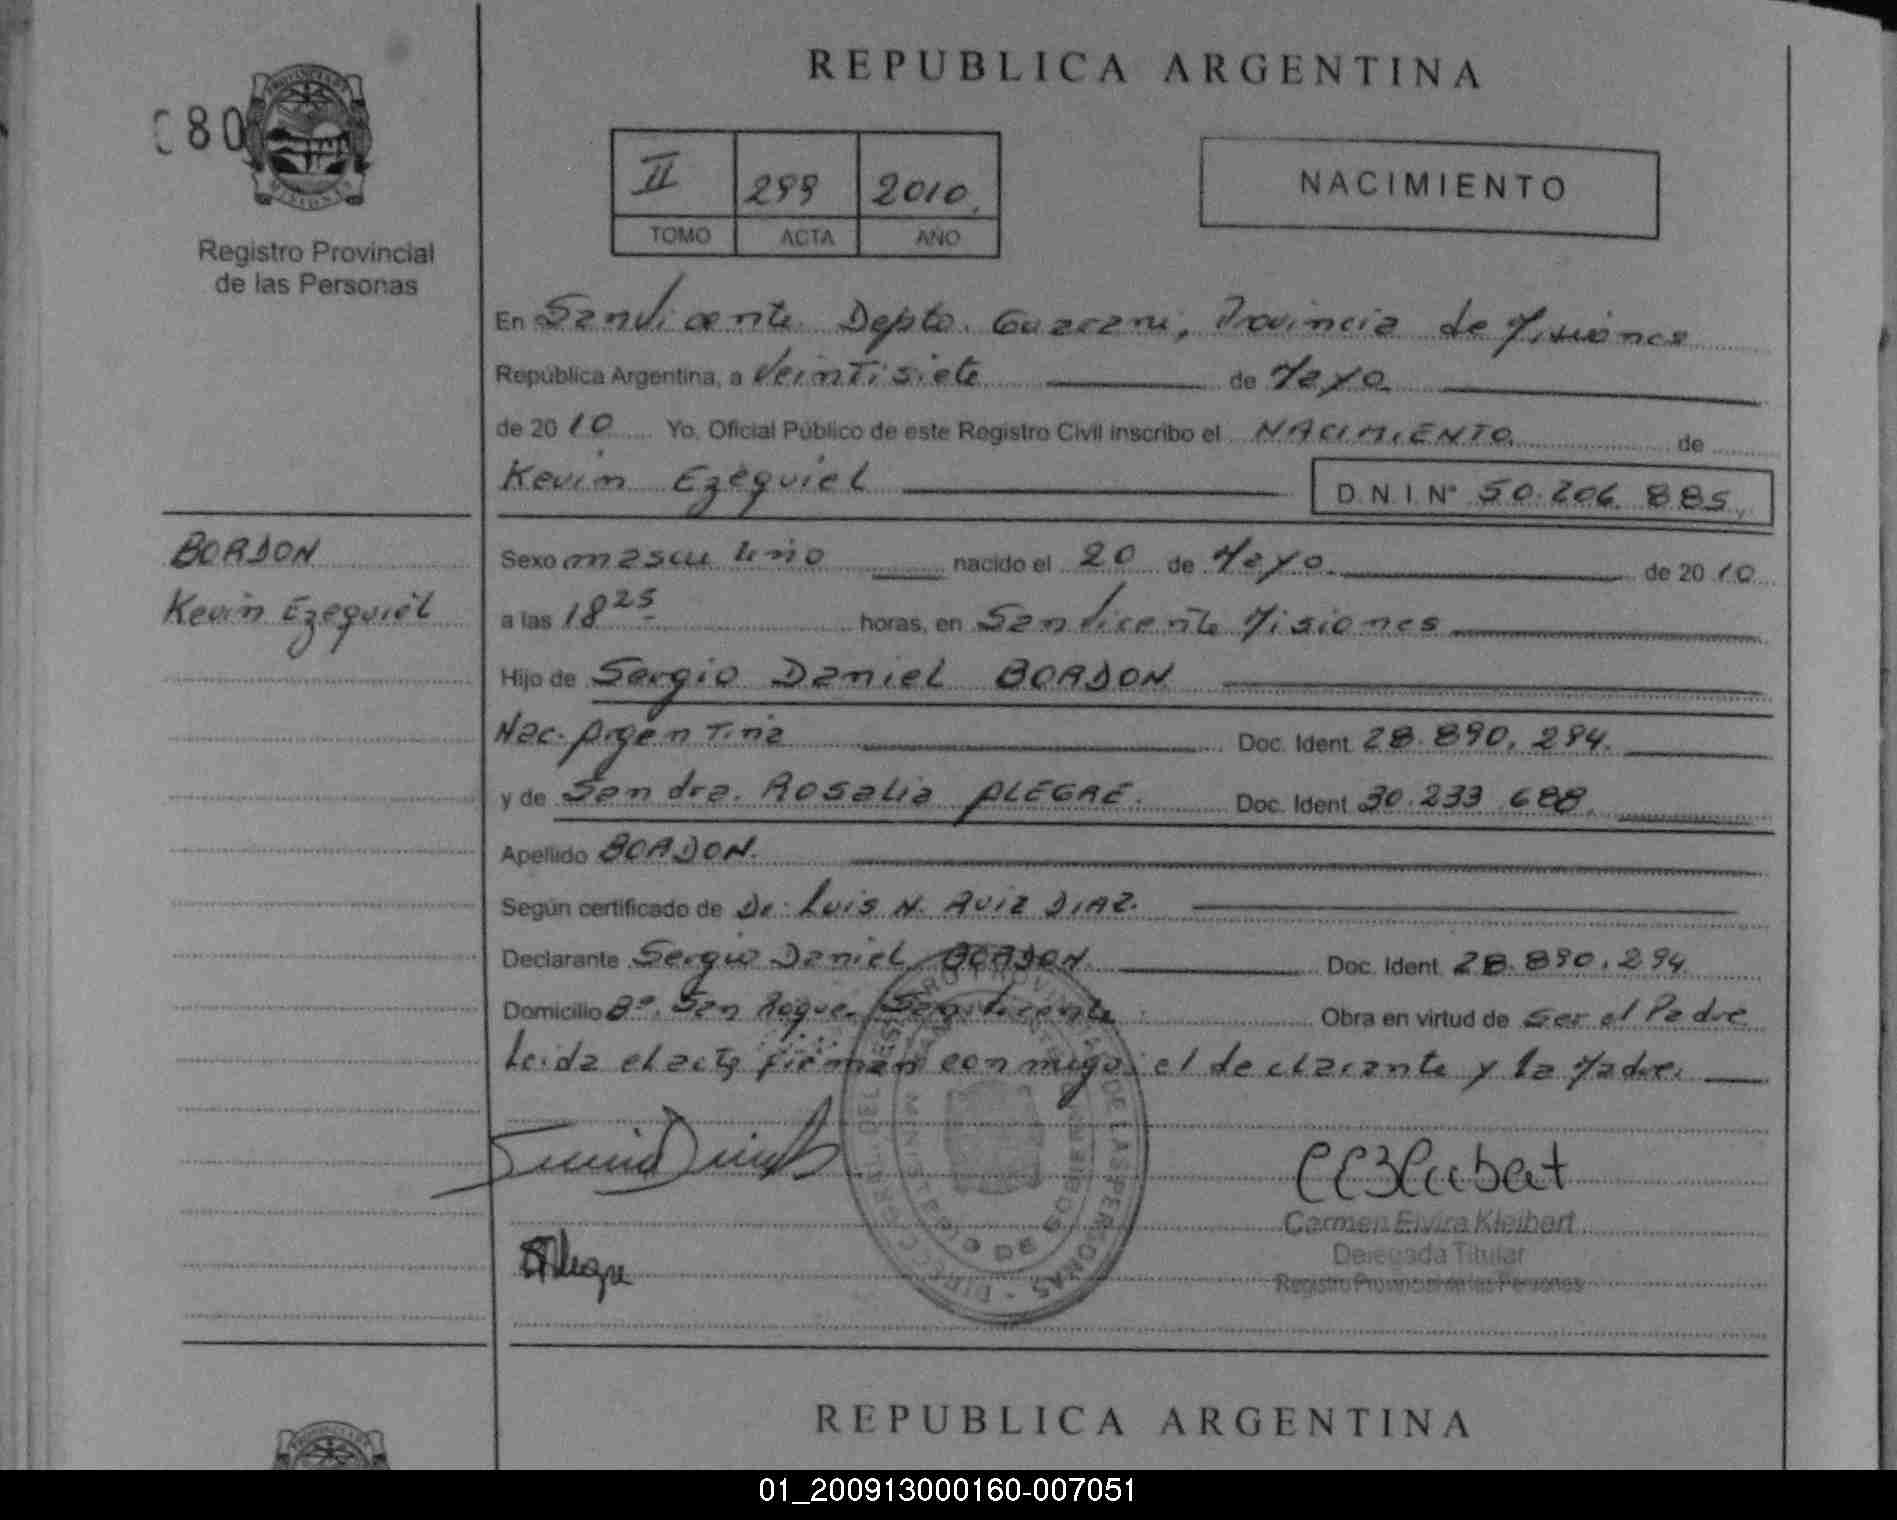 REPUBLICA ARGENTINA
80
Registro Provincial
de las Personas
II 299 2010.
TOMO ACTA AÑO
NACIMIENTO
En San Vicente Depto. Guarani, Provincia de Misiones
República Argentina, a Veintisiete de Mayo
de 2010 Yo, Oficial Público de este Registro Civil inscribo el NACIMIENTO de
Kevin Ezequiel D.N.I. Nº 50.206.885
BORDON
Kevin Ezequiel
Sexo masculino nacido el 20 de Mayo de 2010
a las 18 25 horas, en San Vicente Misiones
Hijo de Sergio Daniel BORDON
Nac. Argentina Doc. Ident. 28.890.294.
y de Sandra Rosalia ALEGRE. Doc. Ident. 30.233.688.
Apellido BORDON.
Según certificado de Dr. Luis N. RUIZ DIAZ.
Declarante Sergio Daniel BORDON Doc. Ident. 28.890.294
Domicilio Bº. San Roque San Vicente Obra en virtud de ser el Padre
Leida el acta firman conmigo el declarante y la Madre.
Carmen Elvira Kleibert
Delegada Titular
Registro Provincial de las Personas
REPUBLICA ARGENTINA
01_200913000160-007051